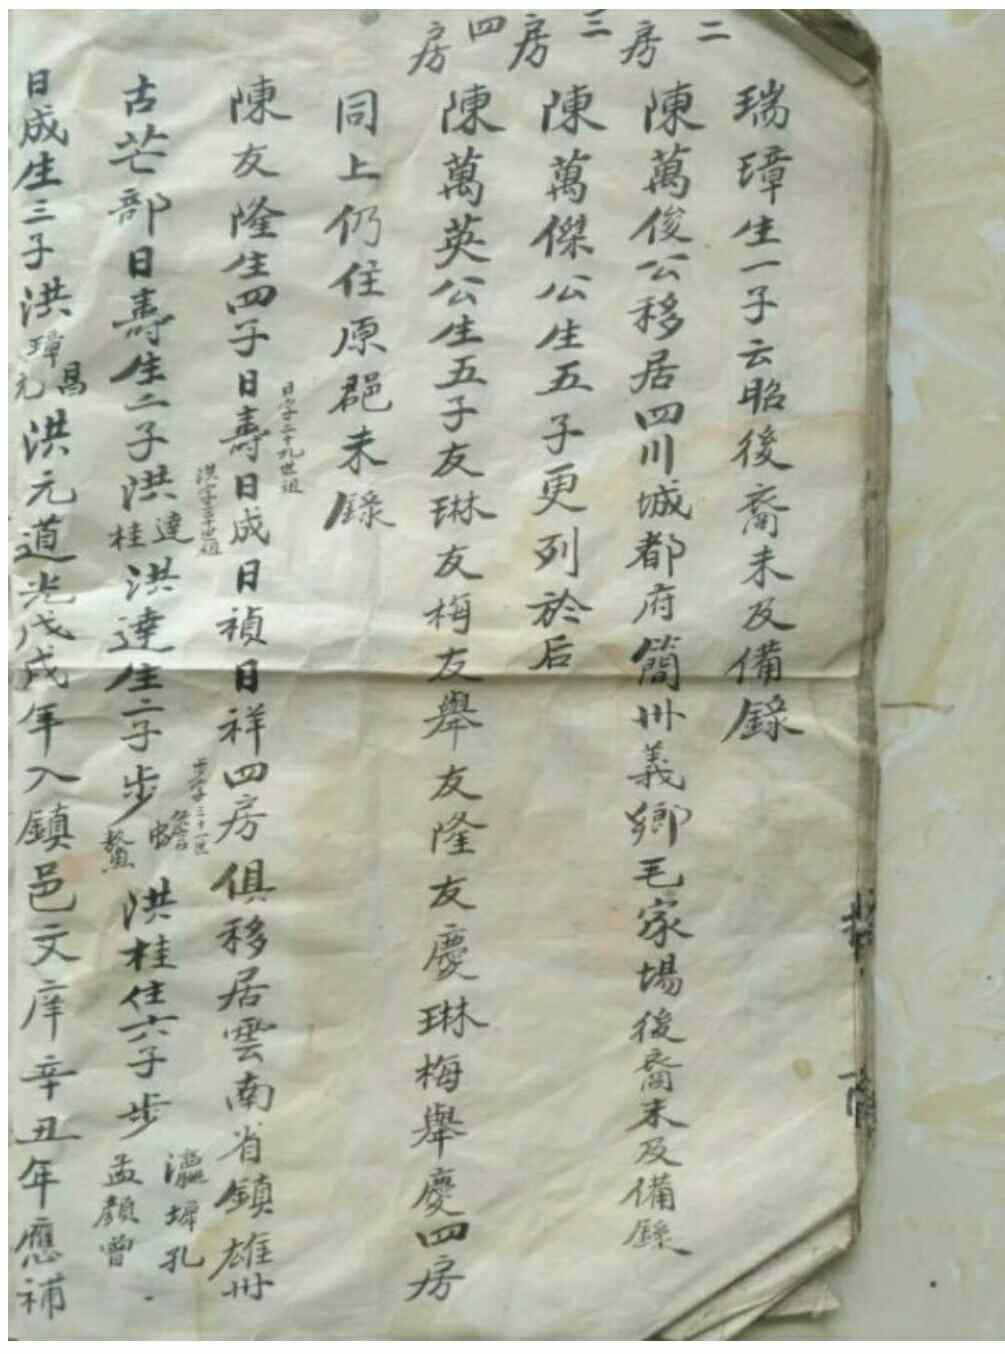 二房
三房
四房
瑞璋生一子云昭後裔未及備錄
陳萬俊公移居四川城都府簡卅義鄉毛家場後裔未及備錄
陳萬傑公生五子更列於后
陳萬英公生五子友琳友梅友舉友隆友慶琳梅舉慶四房
同上仍住原邑未錄
陳友隆生四子日壽日成日禎日祥四房俱移居雲南省鎮雄卅
日字二十九世祖
洪字三十世祖
古芒部日壽生二子洪達桂洪達生二子步蟾鰲洪桂住六子步瀛墀孔孟顏曾
步字三十一世
日成生三子洪璋昌元洪元道光戊戌年入鎮邑文庠辛丑年應補